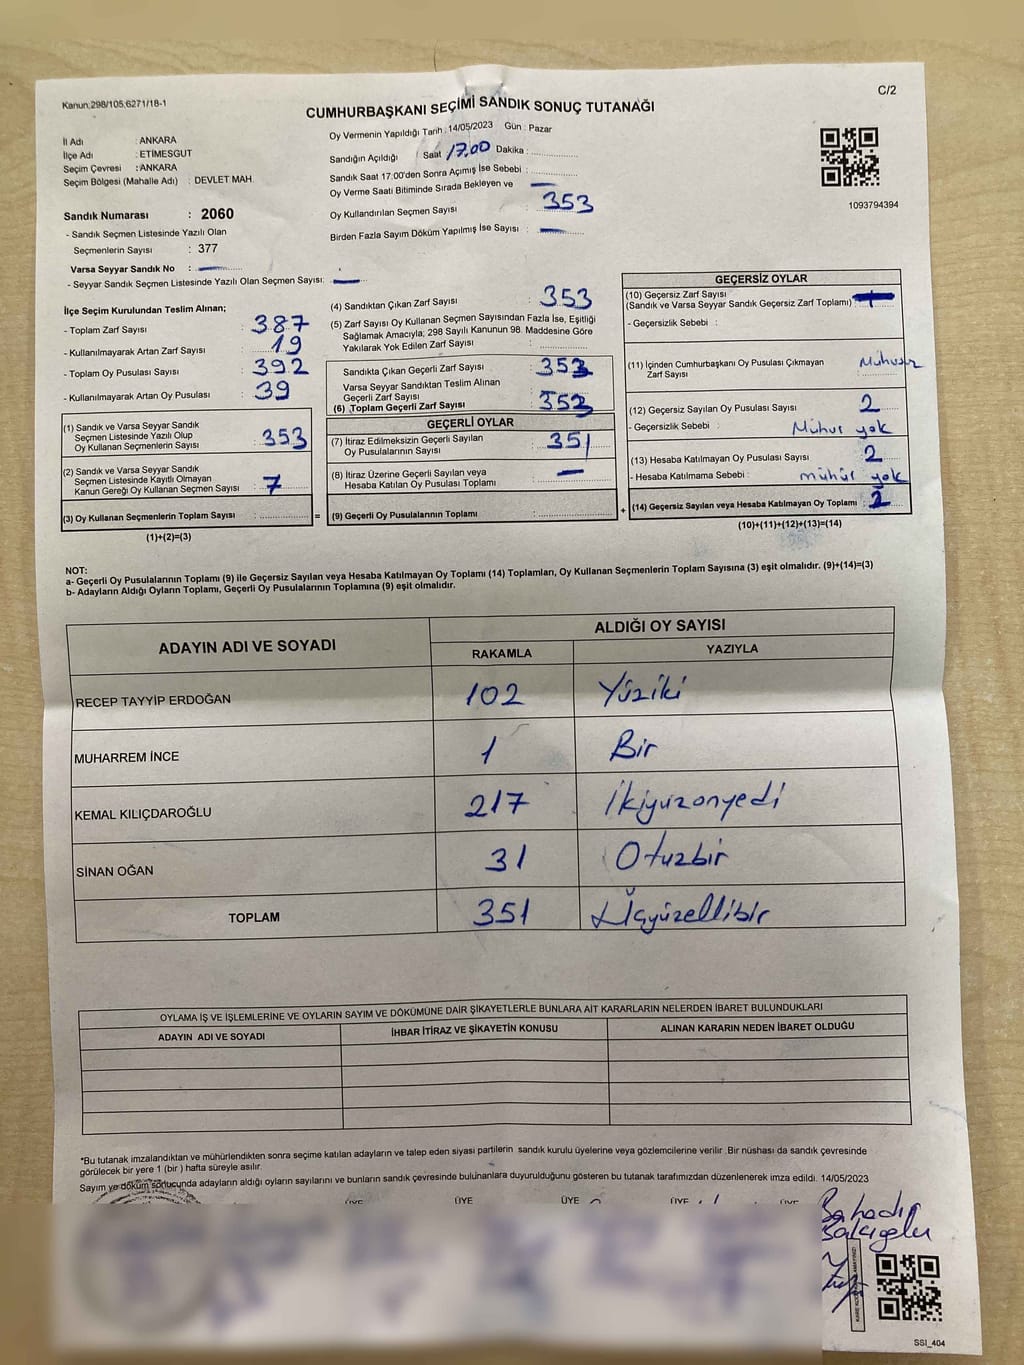 Kanun;298/105;6271/18-1
C/2
CUMHURBAŞKANI SEÇİMİ SANDIK SONUÇ TUTANAĞI
İl Adı : ANKARA
İlçe Adı : ETİMESGUT
Seçim Çevresi : ANKARA
Seçim Bölgesi (Mahalle Adı) : DEVLET MAH.
Oy Vermenin Yapıldığı Tarih : 14/05/2023 Gün : Pazar
Sandığın Açıldığı Saat 17.00 Dakika :
Sandık Saat 17:00'den Sonra Açımış İse Sebebi :
Oy Verme Saati Bitiminde Sırada Bekleyen ve
Oy Kullandırılan Seçmen Sayısı : 353
Birden Fazla Sayım Döküm Yapılmış İse Sayısı :
1093794394
Sandık Numarası : 2060
- Sandık Seçmen Listesinde Yazılı Olan
Seçmenlerin Sayısı : 377
Varsa Seyyar Sandık No :
- Seyyar Sandık Seçmen Listesinde Yazılı Olan Seçmen Sayısı:
İlçe Seçim Kurulundan Teslim Alınan;
- Toplam Zarf Sayısı : 387
- Kullanılmayarak Artan Zarf Sayısı : 19
- Toplam Oy Pusulası Sayısı : 392
- Kullanılmayarak Artan Oy Pusulası : 39
(1) Sandık ve Varsa Seyyar Sandık
Seçmen Listesinde Yazılı Olup
Oy Kullanan Seçmenlerin Sayısı : 353
(2) Sandık ve Varsa Seyyar Sandık
Seçmen Listesinde Kayıtlı Olmayan
Kanun Gereği Oy Kullanan Seçmen Sayısı : 7
(3) Oy Kullanan Seçmenlerin Toplam Sayısı :
(1)+(2)=(3)
(4) Sandıktan Çıkan Zarf Sayısı : 353
(5) Zarf Sayısı Oy Kullanan Seçmen Sayısından Fazla İse, Eşitliği
Sağlamak Amacıyla; 298 Sayılı Kanunun 98. Maddesine Göre
Yakılarak Yok Edilen Zarf Sayısı :
Sandıkta Çıkan Geçerli Zarf Sayısı : 353
Varsa Seyyar Sandıktan Teslim Alınan
Geçerli Zarf Sayısı :
(6) Toplam Geçerli Zarf Sayısı : 353
GEÇERLİ OYLAR
(7) İtiraz Edilmeksizin Geçerli Sayılan
Oy Pusulalarının Sayısı : 351
(8) İtiraz Üzerine Geçerli Sayılan veya
Hesaba Katılan Oy Pusulası Toplamı :
= (9) Geçerli Oy Pusulalarının Toplamı : +
GEÇERSİZ OYLAR
(10) Geçersiz Zarf Sayısı
(Sandık ve Varsa Seyyar Sandık Geçersiz Zarf Toplamı) :
- Geçersizlik Sebebi :
(11) İçinden Cumhurbaşkanı Oy Pusulası Çıkmayan Mühürsüz
Zarf Sayısı :
(12) Geçersiz Sayılan Oy Pusulası Sayısı : 2
- Geçersizlik Sebebi : Mühür yok
(13) Hesaba Katılmayan Oy Pusulası Sayısı : 2
- Hesaba Katılmama Sebebi : mühür yok
(14) Geçersiz Sayılan veya Hesaba Katılmayan Oy Toplamı : 2
(10)+(11)+(12)+(13)=(14)
NOT:
a- Geçerli Oy Pusulalarının Toplamı (9) ile Geçersiz Sayılan veya Hesaba Katılmayan Oy Toplamı (14) Toplamları, Oy Kullanan Seçmenlerin Toplam Sayısına (3) eşit olmalıdır. (9)+(14)=(3)
b- Adayların Aldığı Oyların Toplamı, Geçerli Oy Pusulalarının Toplamına (9) eşit olmalıdır.
ADAYIN ADI VE SOYADI ALDIĞI OY SAYISI
RAKAMLA YAZIYLA
RECEP TAYYİP ERDOĞAN 102 Yüziki
MUHARREM İNCE 1 Bir
KEMAL KILIÇDAROĞLU 217 İkiyüzonyedi
SİNAN OĞAN 31 Otuzbir
TOPLAM 351 Üçyüzellibir
OYLAMA İŞ VE İŞLEMLERİNE VE OYLARIN SAYIM VE DÖKÜMÜNE DAİR ŞİKAYETLERLE BUNLARA AİT KARARLARIN NELERDEN İBARET BULUNDUKLARI
ADAYIN ADI VE SOYADI İHBAR İTİRAZ VE ŞİKAYETİN KONUSU ALINAN KARARIN NEDEN İBARET OLDUĞU
*Bu tutanak imzalandıktan ve mühürlendikten sonra seçime katılan adayların ve talep eden siyasi partilerin sandık kurulu üyelerine veya gözlemcilerine verilir. Bir nüshası da sandık çevresinde
görülecek bir yere 1 (bir ) hafta süreyle asılır.
Sayım ve döküm sonucunda adayların aldığı oyların sayılarını ve bunların sandık çevresinde bulunanlara duyurulduğunu gösteren bu tutanak tarafımızdan düzenlenerek imza edildi. 14/05/2023
ÜYE ÜYE ÜYE ÜYE ÜYE
Bahadır
SSI_404